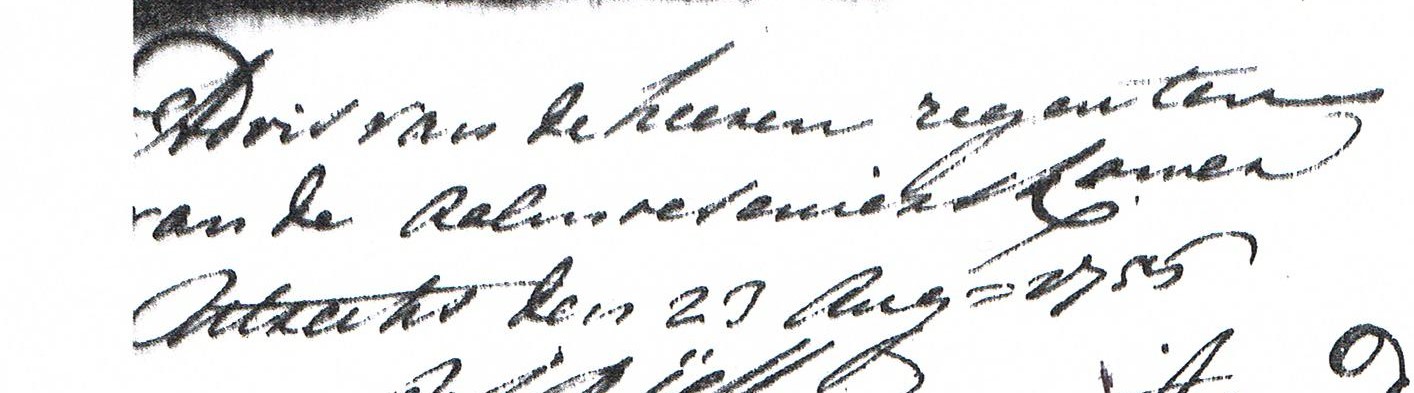 Advis van de heeren regenten
van de Aalmoeseniers Kamer
Utrecht den 23 Aug = 1755